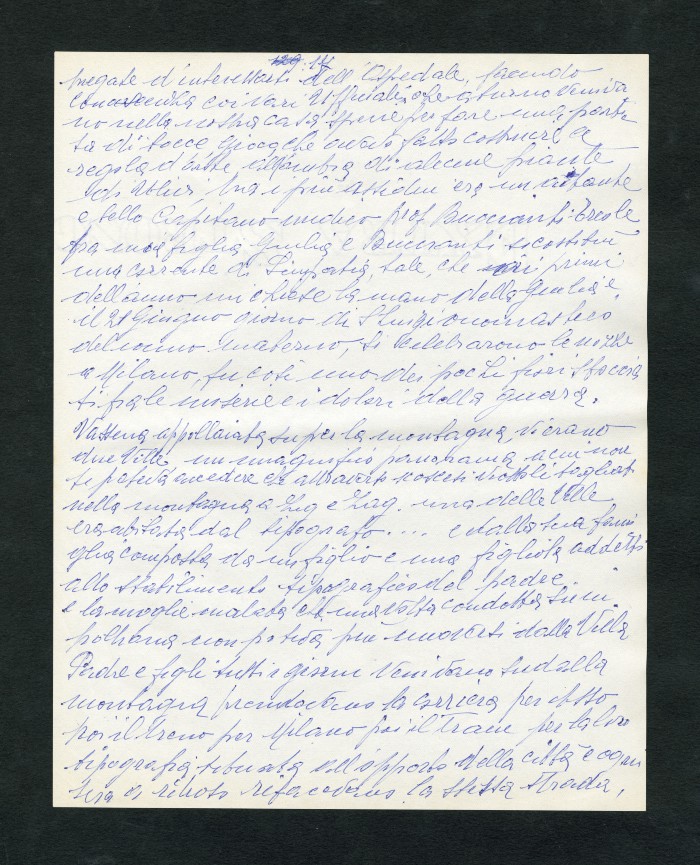 129. 14
pregate d'interessarti dell'Ospedale, facendo
conoscenza coi vari Ufficiali, che a turno veniva
no nella nostra casa spesse per fare una parti
ta di bocce, gioco che avevo fatto costruire a
regola d'arte all'ombra di alcune piante
di Ulivi, Ma i più assidui era un aitante
e bello Capitano medico Prof. Ercole
fra mia figlia Giulia e si costituì
una corrente di Simpatia, tale, che nei primi
dell'anno mi chiese la mano della Giulia e
il 21 Giugno giorno di S Luigi onomastico
del nonno materno, si celebrarono le nozze
a Milano, fu così uno dei pochi fiori sboccia
ti fra le miserie e i dolori della guerra.
Vassena appollaiata su per la montagna, vi erano
due Ville un magnifico panorama, a cui non
si poteva accedere che attraverso scoscesi viottoli tagliati
nella montagna a Zig e Zag. una delle Ville
era abitata dal tipografo .... e dalla sua fami
glia composta da un figlio e una figliola addetti
allo stabilimento tipografico del padre,
e la moglie malata che una volta condotta su in
poltrona non poteva più muoversi dalla Villa
Padre e figli tutti i giorni venivano giù dalla
montagna prendevano la corriera per Lecco
poi il treno per Milano poi il Tram per la loro
tipografia situata all'opposto della città e ogni
sera a ritroso rifacevano la stessa strada,